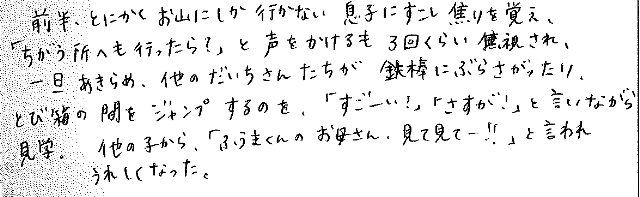 前半、とにかくお山にしか行かない息子にすこし焦りを覚え、
「ちがう所へも行ったら?」と声をかけるも3回くらい無視され、
一旦あきらめ、他のだいちさんたちが鉄棒にぶらさがったり、
とび箱の間をジャンプするのを、「すごーい!」「さすが!」と言いながら
見学。他の子から、「ふうまくんのお母さん、見て見てー!!」と言われ
うれしくなった。